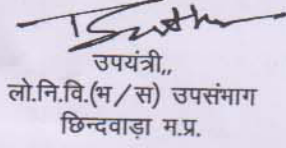 उपयंत्री,,
लो.नि.वि.(भ/स) उपसंभाग
छिन्दवाड़ा म.प्र.